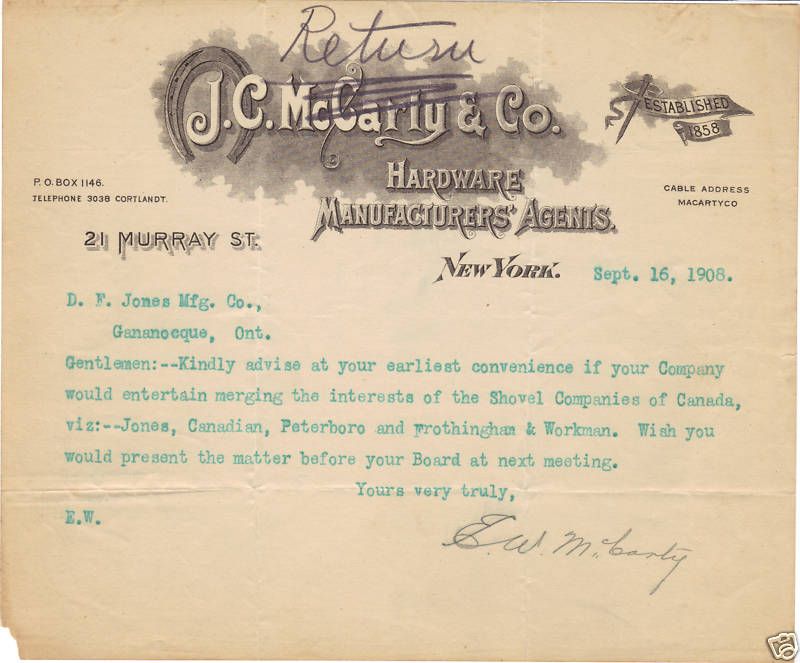 Return
J.C. McCarty & Co.
ESTABLISHED
1858
HARDWARE
MANUFACTURERS' AGENTS.
P.O. BOX 1146.
TELEPHONE 3038 CORTLANDT.
CABLE ADDRESS
MACARTYCO
21 MURRAY ST.
NEW YORK.
Sept. 16, 1908.
D. F. Jones Mfg. Co.,
Gananocque, Ont.
Gentlemen:--Kindly advise at your earliest convenience if your Company
would entertain merging the interests of the Shovel Companies of Canada,
viz:--Jones, Canadian, Peterboro and Frothingham & Workman. Wish you
would present the matter before your Board at next meeting.
Yours very truly,
E.W.
E. W. McCarty